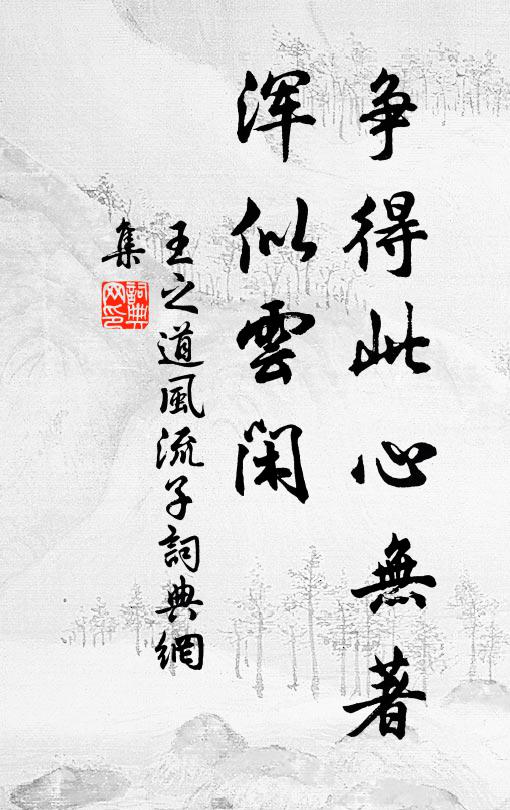 争得此心無著
渾似雲閑
王之道風流子詞典網
集
詞典
网印